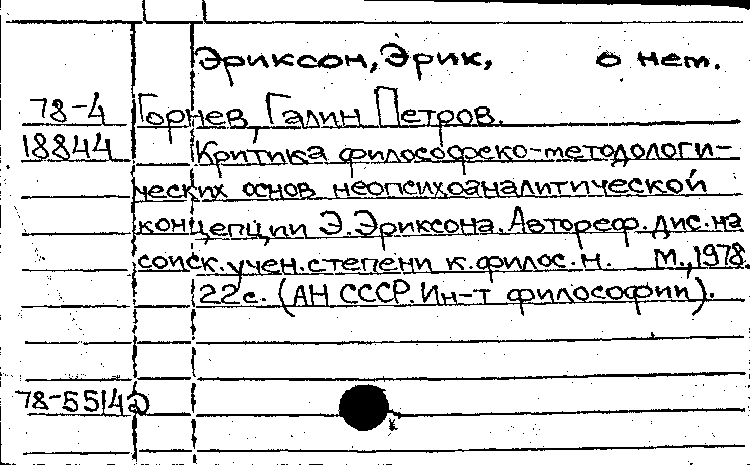 Эриксон, Эрик, о нем.
78-4 Горнев, Галин Петров.
18844 Критика философско-методологи-
ческих основ неопсихоаналитической
концепции Э. Эриксона. Автореф. дис. на
соиск. учен. степени к. филос. н. М., 1978.
22 с. (АН СССР. Ин-т философии).
78-55142